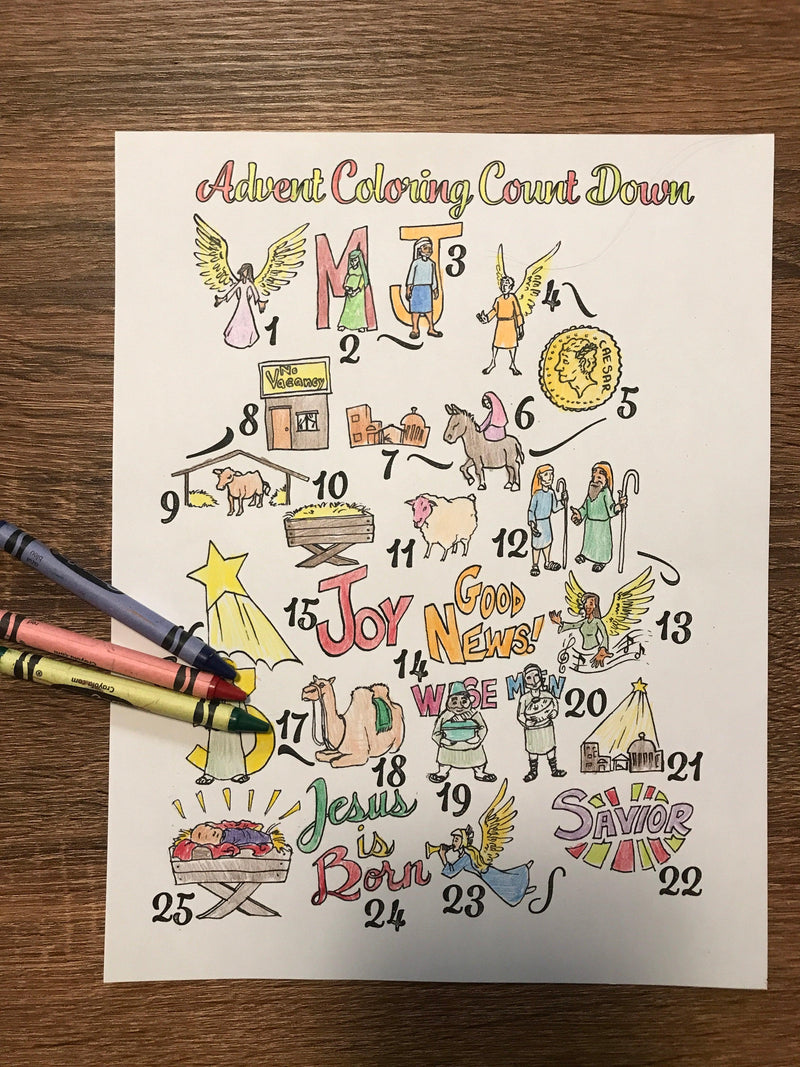 Advent Coloring Count Down
M J 3
1 2 4
CAESAR
No
Vacancy
8 7 6 5
9 10
11 12
15 JOY GOOD
NEWS! 13
14
WISE MEN 20
17 18 19 21
Jesus
is
Born
SAVIOR
25 24 23 22
Crayola.com